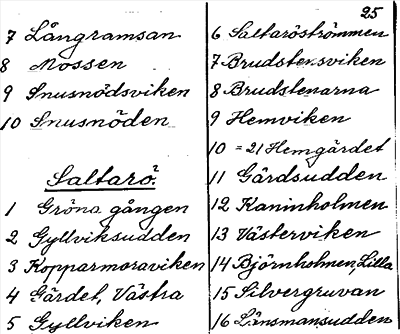 25
7 Långramsan
8 Mossen
9 Snusnödsviken
10 Snusnöden
Saltarö.
1 Gröna gången
2 Gyllviksudden
3 Kopparmoraviken
4 Gärdet, Västra
5 Gyllviken
6 Saltaröströmmen
7 Brudstensviken
8 Brudstenarna
9 Hemviken
10 = 21 Hemgärdet
11 Gärdsudden
12 Kaninholmen
13 Västerviken
14 Björnholmen, Lilla
15 Silvergruvan
16 Länsmansudden